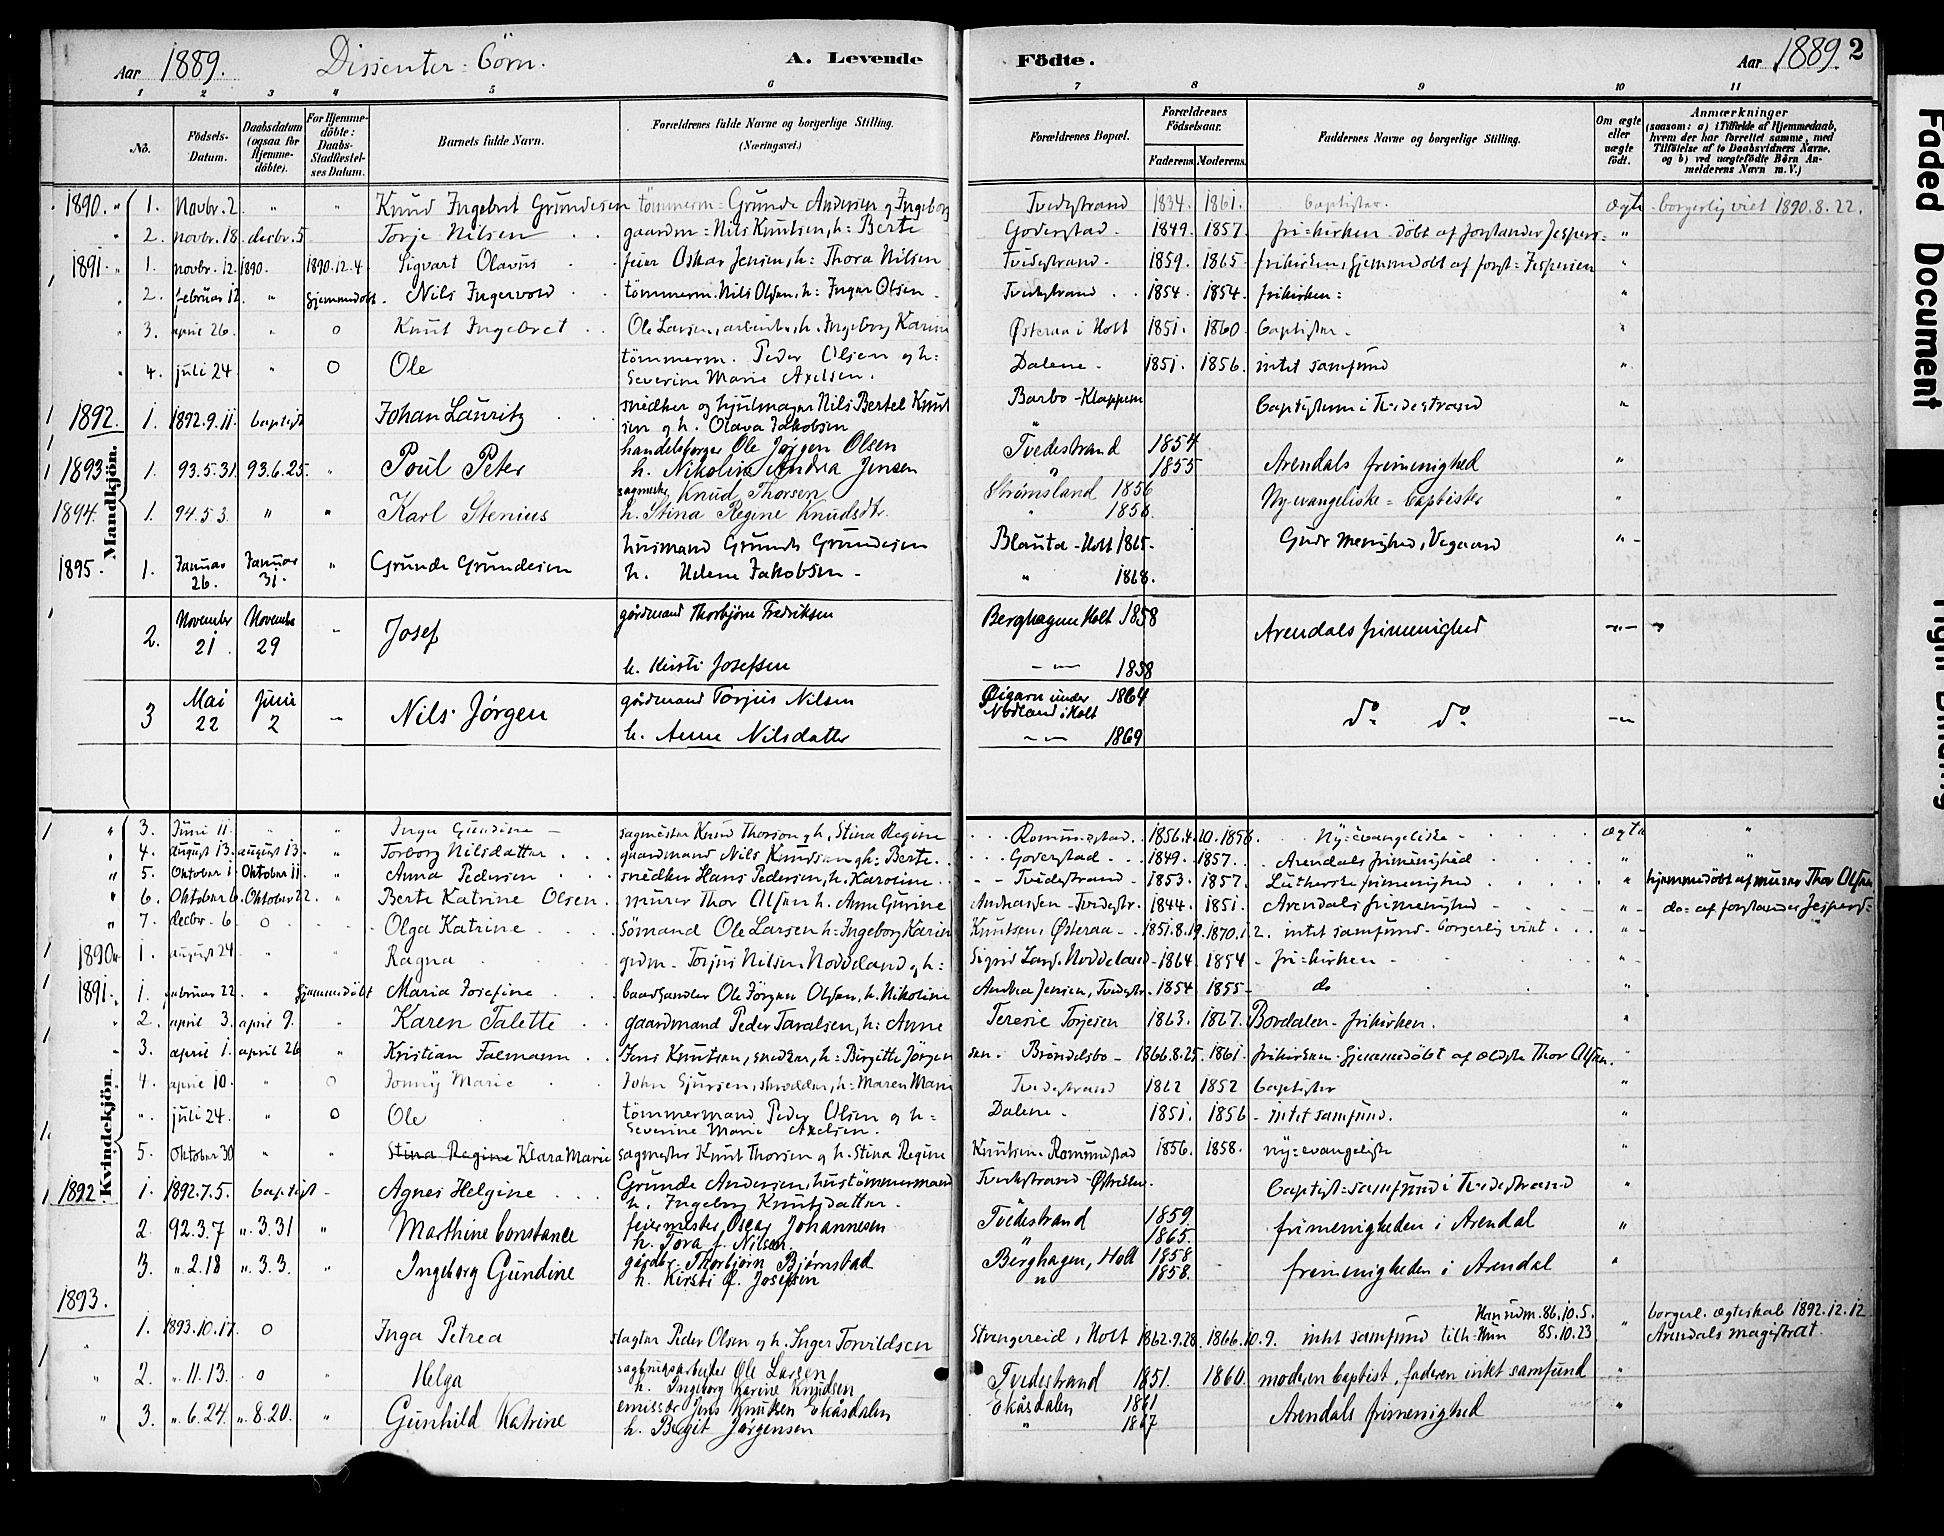 Aar 1889. Dissenter-børn. A. Levende Fødte. Aar 1889. 2
1 2 3 4 5 6 7 8 9 10 11
No. Födsels-Datum. Daabsdatum (ogsaa for Hjemme-döbte). For Hjemme-döbte: Daabs-Stadfæstel-ses Datum. Barnets fulde Navn. Forældrenes fulde Navne og borgerlige Stilling. (Næringsvei.) Forældrenes Bopæl. Forældrenes Födselsaar. Faderens. Moderens. Faddernes Navne og borgerlige Stilling. Om ægte eller uægte födt. Anmærkninger (saasom: a) i Tilfælde af Hjemmedaab, hvem der har forrettet samme, med Tilföielse af to Daabsvidners Navne, og b) ved uægtefödte Börn An-melderens Navn m. V.)
Mandkjön.
1890. " 1. Novbr. 2 " " Knud Ingebret Grundesen tömmerm. Grunde Andersen og Ingeborg Tvedestrand 1834. 1861. baptister. ægte borgerlig viet 1890.8.22.
" 2. novbr. 18. decbr. 5 Torje Nilsen gaardm = Nils Knutsen, h: Berte Goderstad. 1849. 1857. fri-kirken döbt af forstander Jespers: "
1891. " 1. novbr. 12. 1890. 1890.12.4. Sigvart Olavus feier Oskar Jensen, h: Thora Nilsen Tvedestrand. 1859. 1865. frikirken, hjemmedöbt af forst: Jespersen "
" 2. februar 12 " hjemmedöbt. Nils Ingervold tömmerm. Nils Olsen, h: Inger Olsen. Tvedestrand. 1854. 1854. frikirken: "
" 3. april 26. " o Knut Ingebret Ole Larsen, arbeider, h. Ingeborg Karine Østeraa i Holt 1851. 1860. baptister. "
" 4. juli 24 " o Ole tömmerm. Peder Olsen og h: Dalene. 1851. 1856. intet samfund "
Severine Marie Axelsen.
1892. 1. 1892.9.11. baptist Johan Lauritz snedker og hjulmager Nils Bertel Knut Barbo-Kloppen baptisterne i Tvedestrand "
sen og h. Olava Jakobsen
1893 1. 93.5.31. 93.6.25. " Poul Peter handelsborger Ole Jørgen Olsen Tvedestrand 1854 Arendals frimenighed "
h. Nikoline Andrea Jensen " 1855
1894. 1. 94.5.3. " " Karl Stenius sagmester Knud Thorsen Strømsland 1856 Ny-evangeliske = baptister "
h. Stina Regine Knudsdtr. " 1858.
1895. 1. Januar 26. Januar 31. " Grunde Grundesen husmand Grunde Grundesen Blauta-Holt 1865. Guds Menighed, Vegaard "
h. Helene Jakobsen " 1868.
2. November 21 November 29 " Josef gårdmand Thorbjörn Fredriksen Berghagen Holt 1858 Arendals frimenighed
h. Kirsti Josefsen 1858
3 Mai 22 Juni 2 Nils Jørgen gårdmand Torjus Nilsen Øigarn under Nodland i Holt 1864 do do
h. Anne Nilsdatter 1869
Kvindekjön.
" 3. Juni 11. " " Inga Gundine sagmester Knud Thorson og h, Stina Regine Romundstad. 1856.4. 10. 1858. Ny-evangeliske ægte "
" 4. august 13. august 13. " Torborg Nilsdatter gaardmand Nils Knudsen og h: Berte. Goderstad. 1849. 1857. Arendals frimenighed " "
" 5. Oktober 1 Oktober 11. " Anna Pedersen snedker Hans Pedersen, h. Karoline Tvedestrand 1853. 1857. Lutherske frimenighed " hjemmedöbt af murer Thor Olsen
" 6. Oktober 6. Oktober 22. " Berte Katrine Olsen. murer Thor Olsen h. Anne Gurine Andreassen-Tvedestr. 1844. 1851. Arendals frimenighed do= af forstander Jespers=
" 7. decbr. 6 o Olga Katrine sömand Ole Larsen h: Ingeborg Karin Knutsen, Østeraa 1851.8.19. 1870.1.2. intet samfund. borgerlig viet.
1890. 1. august 24 " " Ragna grdm. Torjus Nilsen Noddeland og h= Sigrid Larsd. Noddeland 1864. 1854 fri-kirken "
1891. 1. februar 22 " hjemmedöbt Maria Josefine baadsandler Ole Jörgen Olsen, h. Nikoline Andrea Jensen, Tvedestr. 1854 1855 do "
" 2. april 3. april 9. Karen Talette gaardmand Peder Taralsen, h: Anne Teresie Torjesen 1863. 1867. Bordalen frikirken. "
3. april 1. april 26 " Kristian Falmann Jens Knutsen, snedker, h: Birgitte Jörgen sen. Bröndelsbo 1866.8.25. 1861. frikirken. hjemmedöbt af ældste Thor Olsen. "
4. april 10. " o Jonny Marie John Gjursen, skrædder, h: Maren Marie Tvedestrand 1862 1852 baptister "
". juli 24. " o Ole tömmermand Peder Olsen og h= Dalene. 1851. 1856 intet samfund. "
Severine Marie Axelsen.
5. Oktober 30 " " Stina Regine Klara Marie sagmester Knut Thorsen og h. Stina Regine Knutsen Romundstad 1856. 1858. ny=evangeliste "
1892 1. 1892.7.5. baptist Agnes Helgine Grunde Andersen, hustömmermand Tvedestrand baptist=samfund i Tvedestrand "
h. Ingeborg Knutsdatter.
2. 92.3.7 ". 3.31 " Marthine Constance feiermester Oscar Johannesen Tvedestrand 1859. frimenigheden i Arendal "
h. Tora f. Nilsen " 1865.
3. ". 2.18 ". 3.3. " Ingeborg Gundine gårdbr. Thorbjörn Bjørnstad Berghagen, Holt 1858 frimenigheden i Arendal "
h. Kirsti f. Josefsen " 1858.
1893.
1. 1893.10.17. o Inga Petrea slagter Peder Olsen og h. Inger Torvildsen Strengereid, Holt 1862.9.28. 1866.10.9. intet samfund tilh. Han udm. 86.10.5. Hun 85.10.23 " borgerl. ægteskab 1892.12.12 Arendals magistrat.
" 2. ". 11.13. o " Helga sagbrugsarbeider Ole Larsen Tvedestrand 1851. 1860. moderen baptist, faderen intet samfund "
h. Ingeborg Karine Knudsen
" 3. ". 6.24. ". 8.20. " Gunhild Katrine emissær Jens Knutsen Ekåsdalen Ekåsdalen 1861 Arendals frimenighed "
h. Begit Jørgensen " 1867
Faded Document
Tight Binding